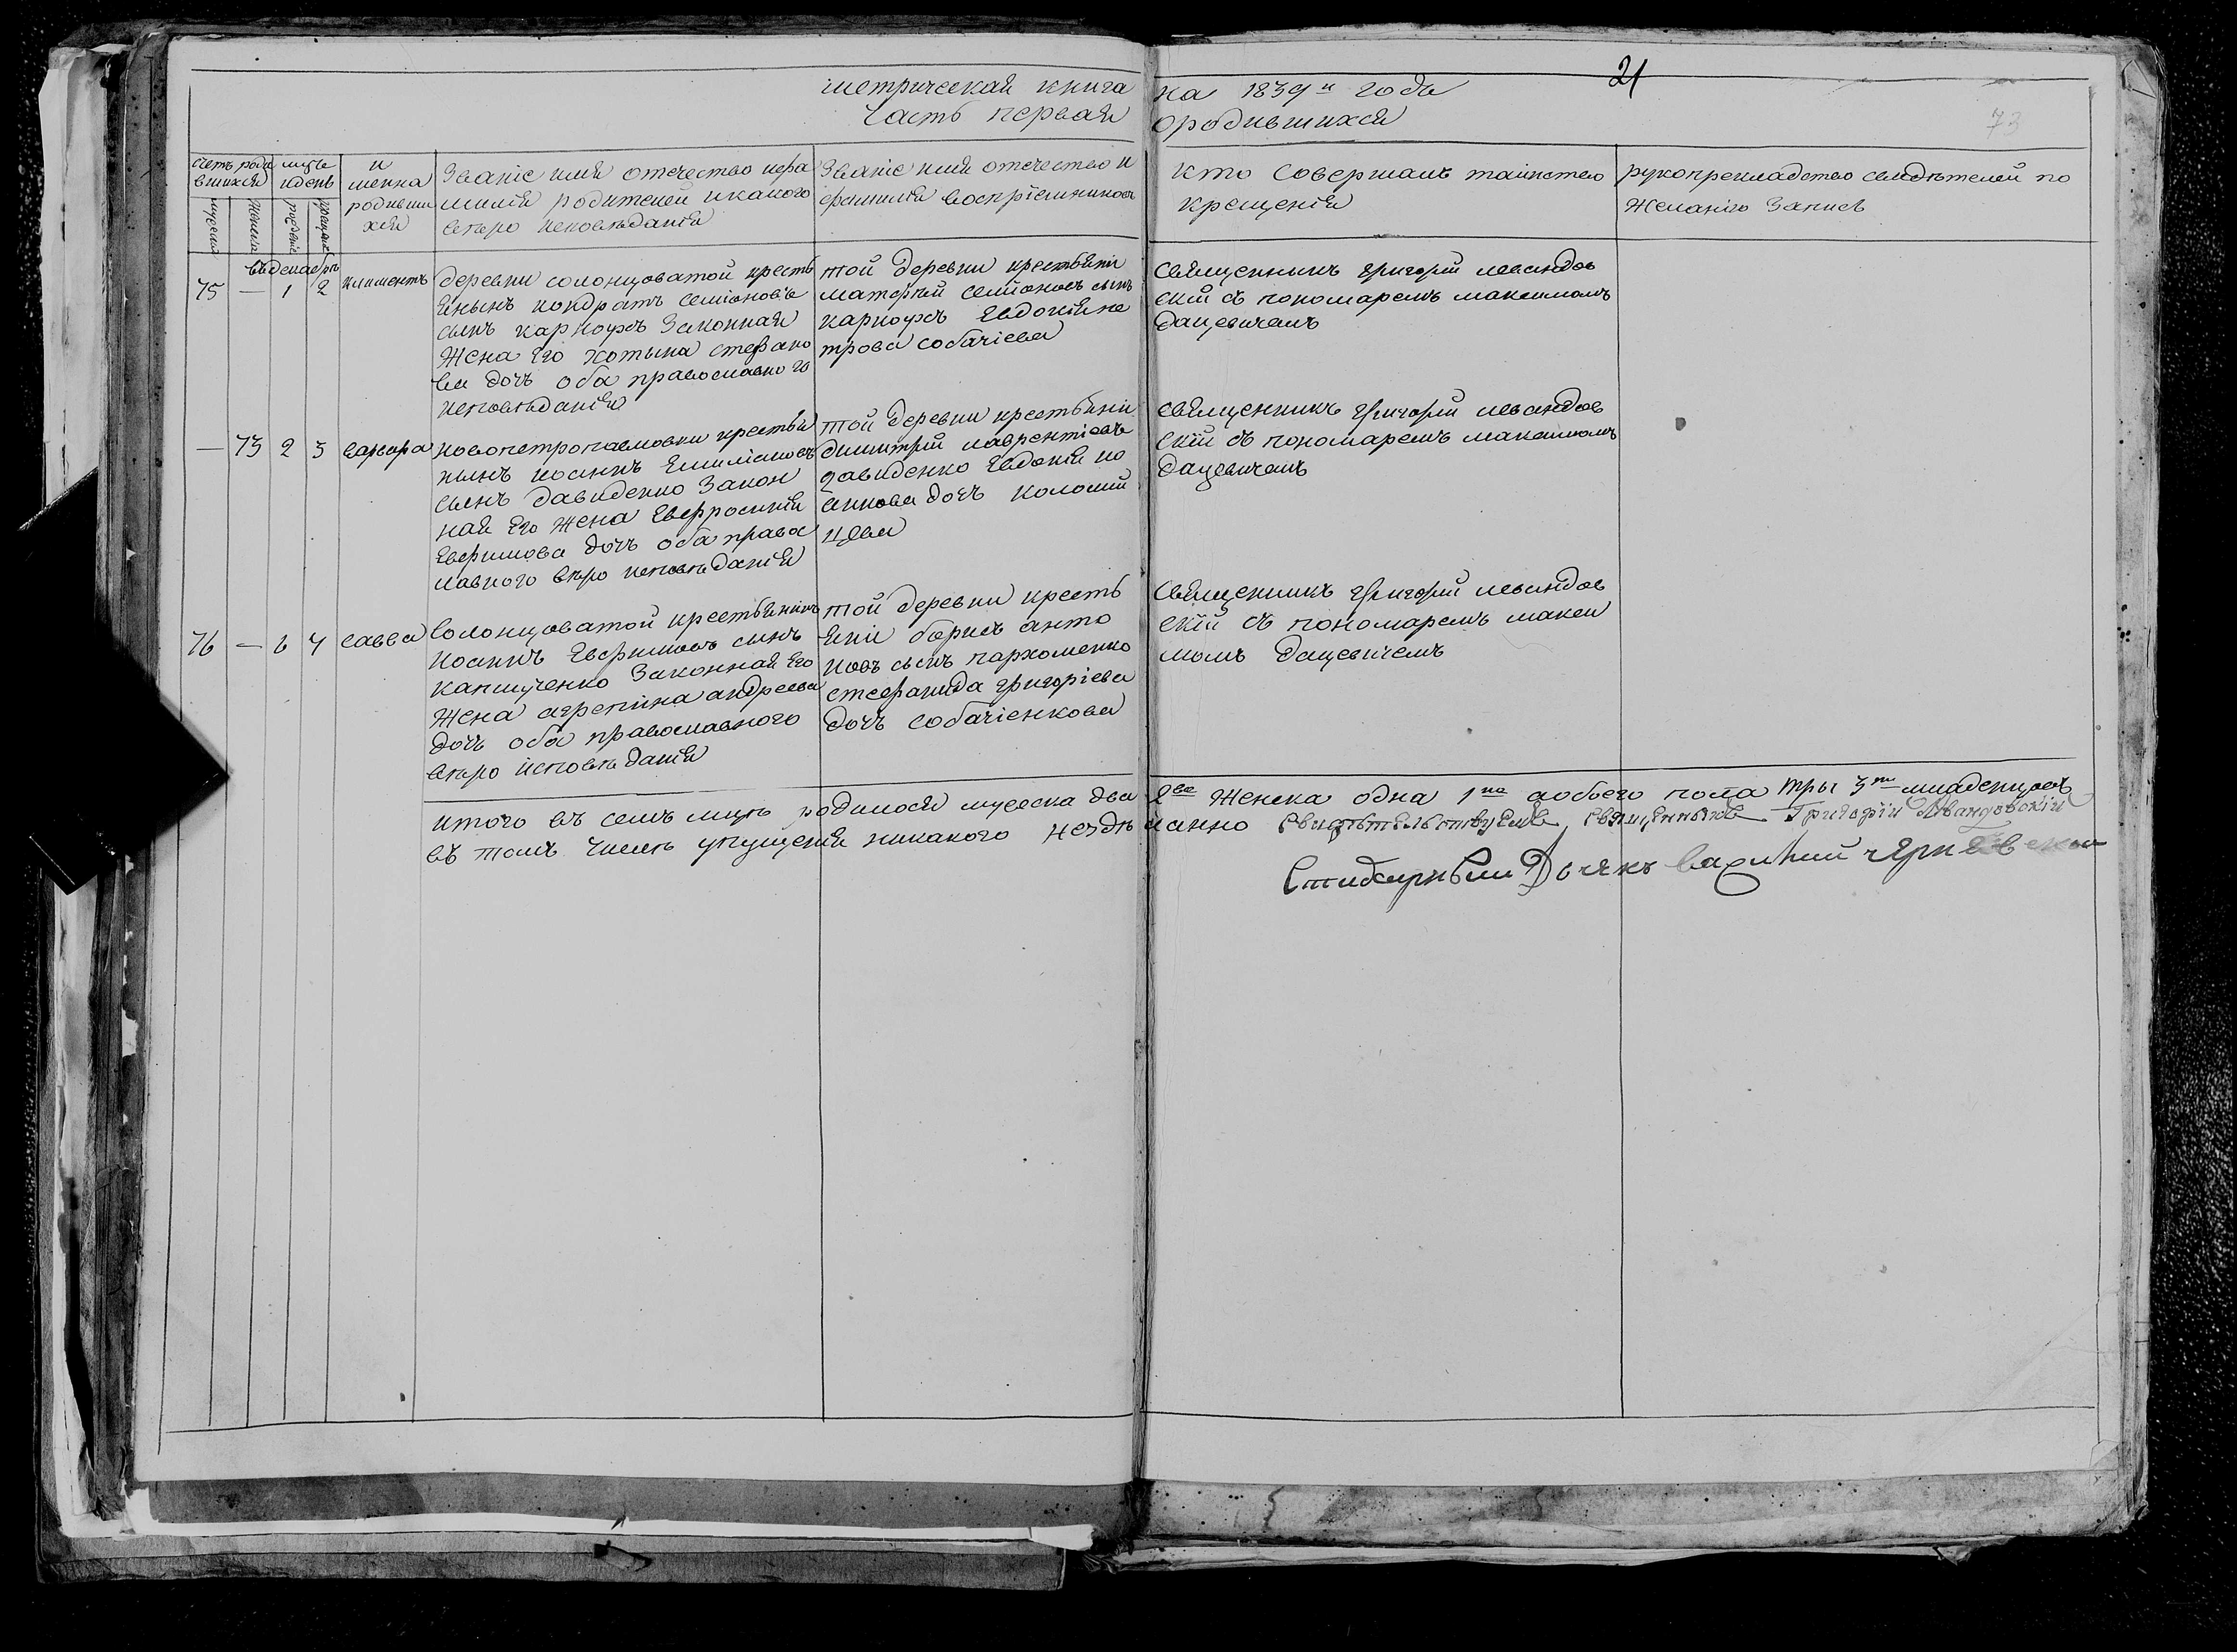 21
73
метрическая книга на 1839й года
Часть первая ородившихся
счетъ роди
вшихся
мужеска
женска
мѣце
идень
рожденіе
крещеніе
и
менна
родивши
хся
Званіе имя отечество ифа
милія родителей икакого
вѣро исповѣданія
Званіе имя отечество и
фамилія воспріемников
кто Совершалъ таинство
крещенія
рукопрекладство свидѣтелей по
Желанію Записъ
въдекабрѣ
75 — 1 2 климентъ
деревни солонцоватой кресть
янынъ кондратъ семіоновъ
сынъ карноухъ Законная
Жена Его хотына стефано
ва дочъ оба православного
исповѣданія
той деревни крестьяни
матофей семионовъ сынъ
карноухъ Евдокія пе
трова собачіева
священникъ григорій левандов
скій съ пономаремъ максимомъ
дацевичемъ
— 73 2 3 варвара
новопетропавловки крестья
нынъ иоаннъ Емиліановъ
сынъ давиденко Закон
ная Его Жена Евфросинія
Евфимова дочъ оба права
лавного вѣро исповѣданія
той деревни крестьяни
димитрій лаврентіевъ
давиденко Евдокія ио
аннова дочъ коломий
цева
священникъ григорій левандов
скій съ пономаремъ максимомъ
дацевичемъ
76 — 6 7 савва
Солонцоватой крестьянинъ
иоаннъ Евфимовъ сынъ
капшученко Законная Его
Жена агрепина андреева
дочъ оба православного
вѣро исповѣданія
той деревни кресть
яни борисъ анто
новъ сынъ пархоменко
стефанида григоріева
дочъ собачіенкова
священникъ григорій левандов
скій съ пономаремъ макси
момъ дацевичемъ
итого въ семъ мцѣ родилося мужеска два 2ва Женска одна 1на аобоего пола тры 3ри младенцовъ
въ томъ числѣ упущенія никакого нездѣланно Свидѣтельствуемъ Священникъ Григорій Левандовскій
Стихарный Дьячкъ